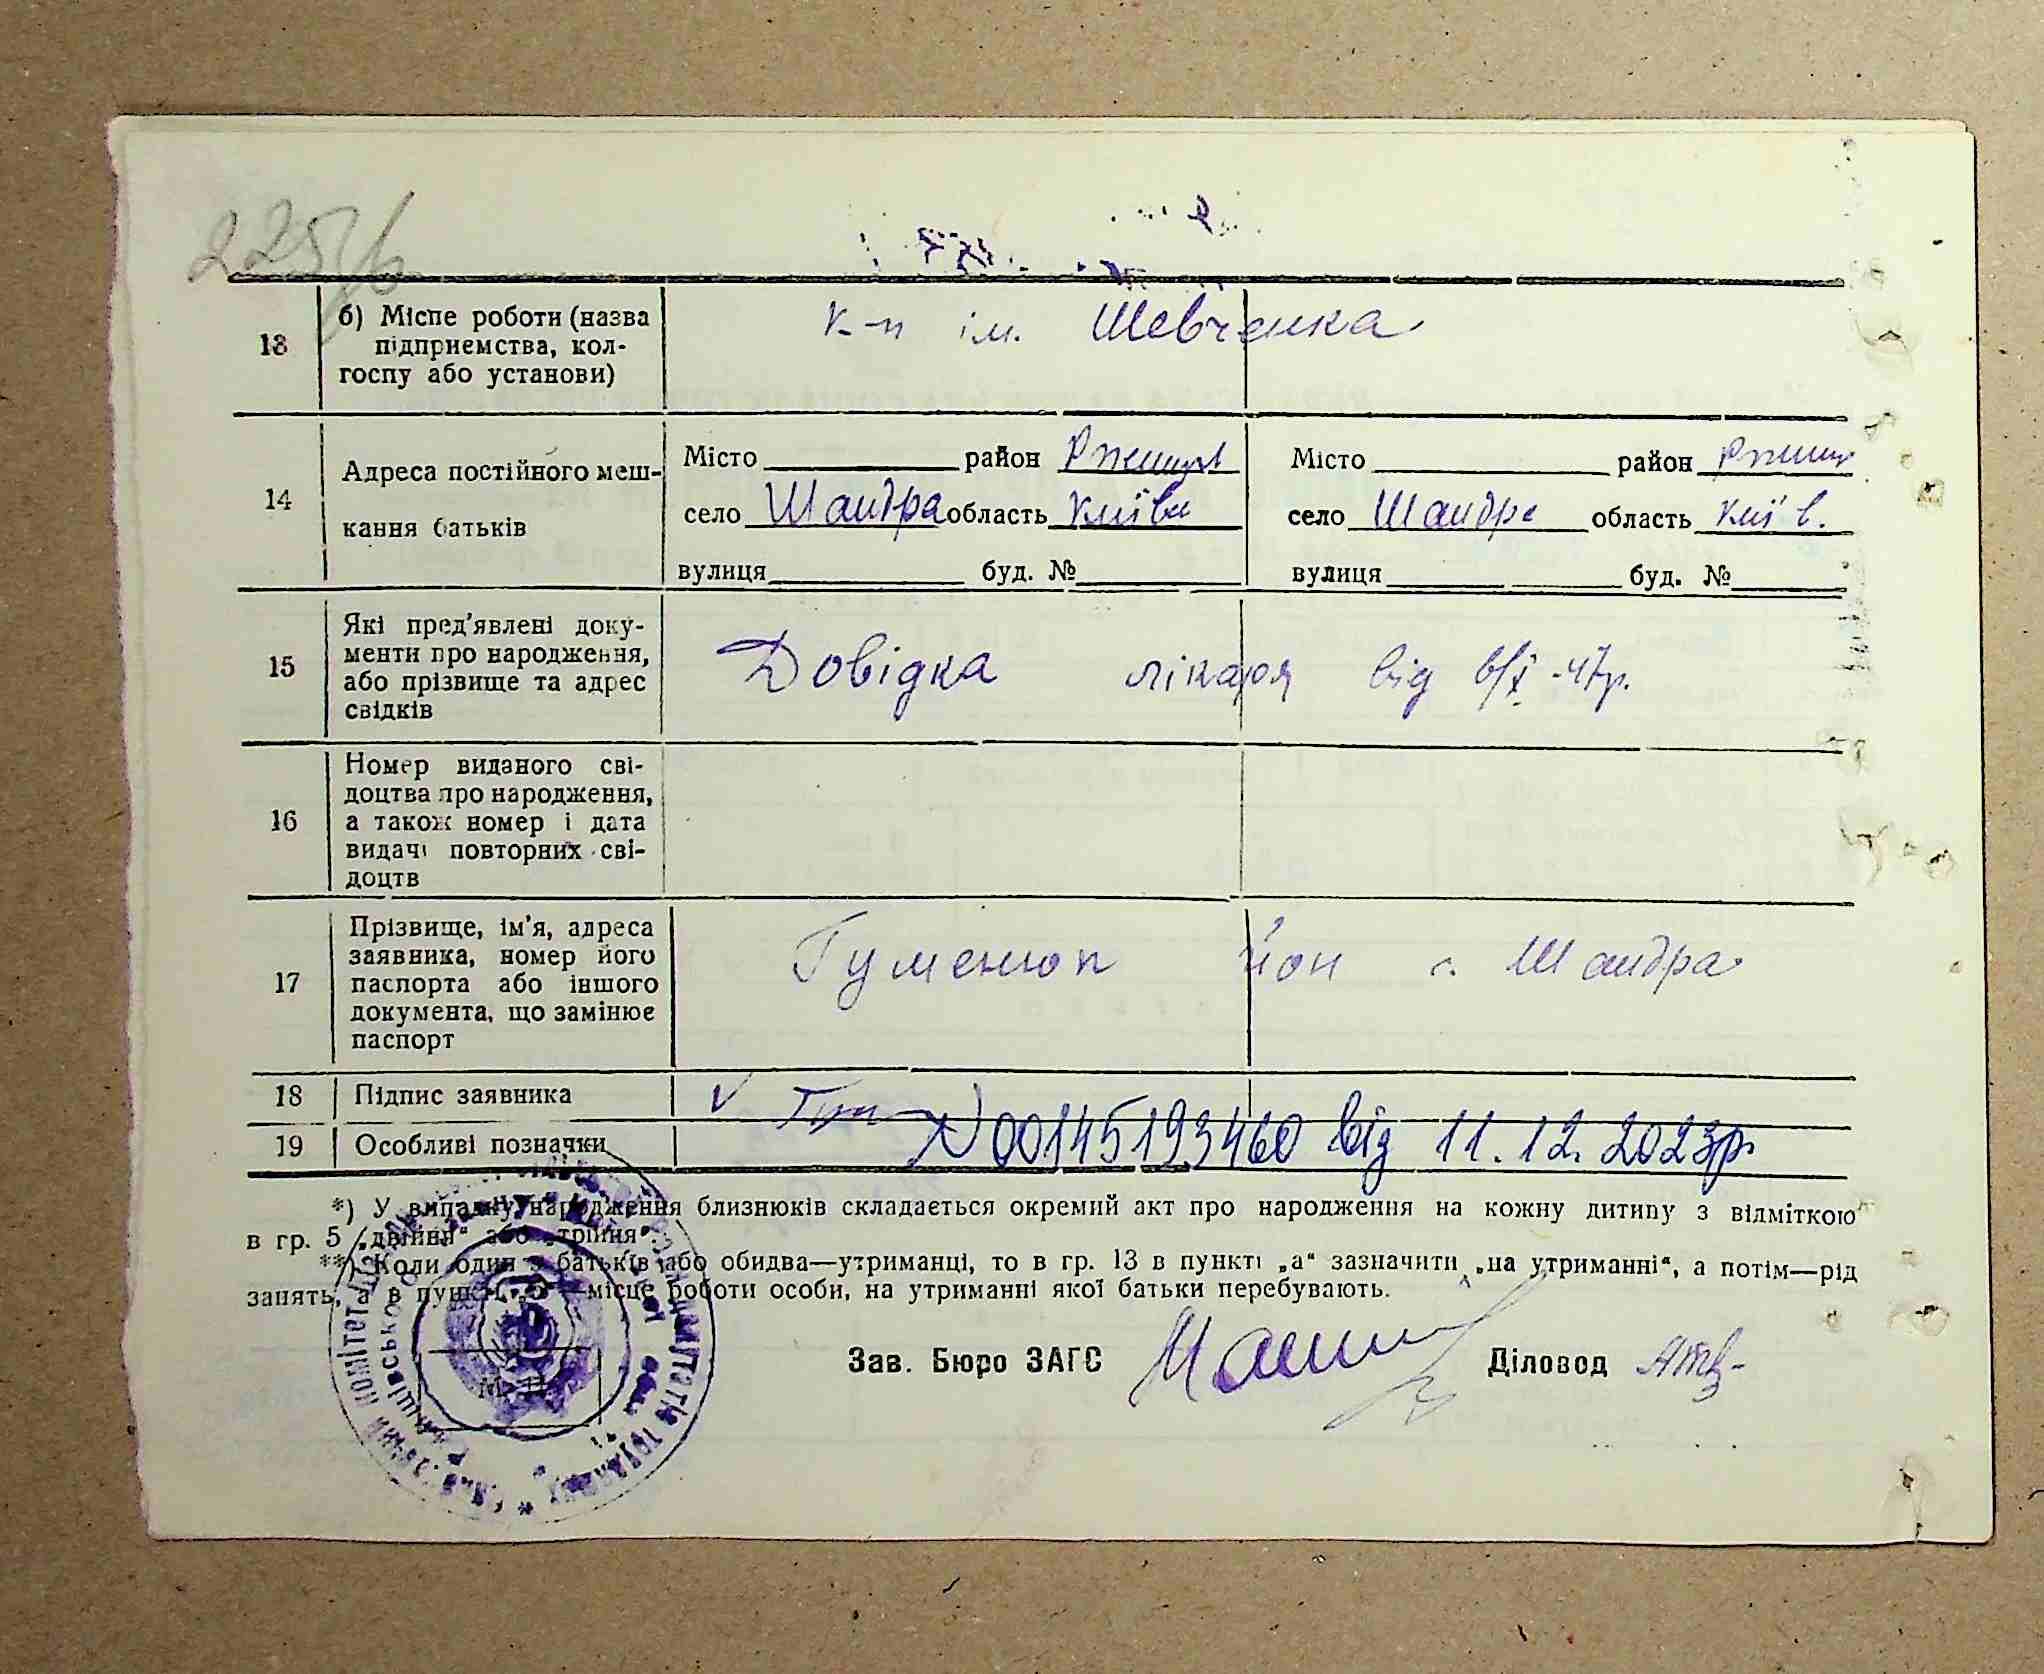 225/б
13 б) Місце роботи (назва підприємства, колгоспу або установи) к-п ім. Шевченка
14 Адреса постійного мешкання батьків
Місто район Ржищів Місто район Ржищ
село Шандра область Київськ село Шандра область Київ.
вулиця буд. № вулиця буд. №
15 Які пред'явлені документи про народження, або прізвище та адрес свідків Довідка лікаря від 6/X-47р.
16 Номер виданого свідоцтва про народження, а також номер і дата видачі повторних свідоцтв
17 Прізвище, ім'я, адреса заявника, номер його паспорта або іншого документа, що замінює паспорт Гуменюк Йон с. Шандра
18 Підпис заявника V
19 Особливі позначки N00145193460 від 11.12.2023р.
*) У випадку народження близнюків складається окремий акт про народження на кожну дитину з відміткою
в гр. 5 „двійня“ або „трійня“.
**) Коли один з батьків або обидва—утриманці, то в гр. 13 в пункті „а“ зазначити „на утриманні“, а потім—рід
занять, а в пункті „б“—місце роботи особи, на утриманні якої батьки перебувають.
Зав. Бюро ЗАГС Діловод
М. П.